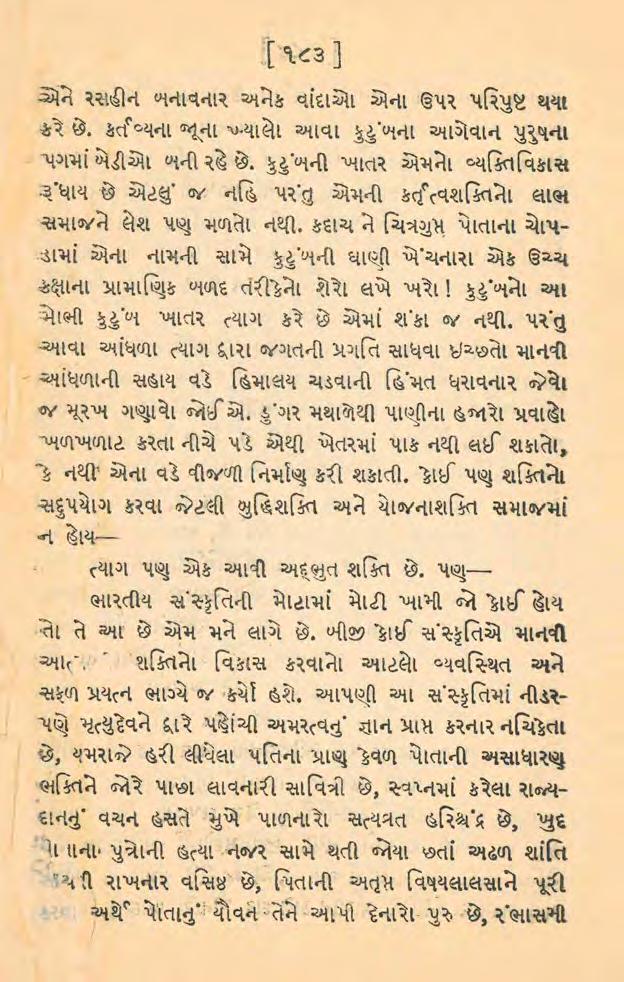 [ ૧૮૩ ]
એને રસહીન બનાવનાર અનેક વાંદાઓ એના ઉપર પરિપુષ્ટ થયા
કરે છે. કર્તવ્યના જૂના ખ્યાલો આવા કુટુંબના આગેવાન પુરુષના
પગમાં બેડીઓ બની રહે છે. કુટુંબની ખાતર એમનો વ્યક્તિવિકાસ
રૂંધાય છે એટલું જ નહિ પરંતુ એમની કર્તૃત્વશક્તિનો લાભ
સમાજને લેશ પણ મળતો નથી. કદાચ ને ચિત્રગુપ્ત પોતાના ચોપ-
ડામાં એના નામની સામે કુટુંબની ઘાણી ખેંચનારા એક ઉચ્ચ
કક્ષાના પ્રામાણિક બળદ તરીકેનો શેરો લખે ખરો! કુટુંબનો આ
મોભી કુટુંબ ખાતર ત્યાગ કરે છે એમાં શંકા જ નથી. પરંતુ
આવા આંધળા ત્યાગ દ્વારા જગતની પ્રગતિ સાધવા ઇચ્છતો માનવી
આંધળાની સહાય વડે હિમાલય ચડવાની હિંમત ધરાવનાર જેવો
જ મૂરખ ગણાવો જોઈએ. ડુંગર મથાળેથી પાણીના હજારો પ્રવાહો
ખળખળાટ કરતા નીચે પડે એથી ખેતરમાં પાક નથી લઈ શકાતો,
કે નથી એના વડે વીજળી નિર્માણ કરી શકાતી. કોઈ પણ શક્તિનો
સદુપયોગ કરવા જેટલી બુદ્ધિશક્તિ અને યોજનાશક્તિ સમાજમાં
ન હોય—
ત્યાગ પણ એક આવી અદ્ભુત શક્તિ છે. પણ—
ભારતીય સંસ્કૃતિની મોટામાં મોટી ખામી જો કોઈ હોય
તો તે આ છે એમ મને લાગે છે. બીજી કોઈ સંસ્કૃતિએ માનવી
શક્તિનો વિકાસ કરવાનો આટલો વ્યવસ્થિત અને
સફળ પ્રયત્ન ભાગ્યે જ કર્યો હશે. આપણી આ સંસ્કૃતિમાં નીડર-
પણે મૃત્યુદેવને દ્વારે પહોંચી અમરત્વનું જ્ઞાન પ્રાપ્ત કરનાર નચિકેતા
છે, યમરાજે હરી લીધેલા પતિના પ્રાણ કેવળ પોતાની અસાધારણ
ભક્તિને જોરે પાછા લાવનારી સાવિત્રી છે, સ્વપ્નમાં કરેલા રાજ્ય-
દાનનું વચન હસતે મુખે પાળનારો સત્યવ્રત હરિશ્ચંદ્ર છે, ખુદ
પુત્રોની હત્યા નજર સામે થતી જોયા છતાં અઢળ શાંતિ
રાખનાર વસિષ્ઠ છે, પિતાની અતૃપ્ત વિષયલાલસાને પૂરી
અર્થે પોતાનું યૌવન તેને આપી દેનારો પુરુ છે, રંભાસમી